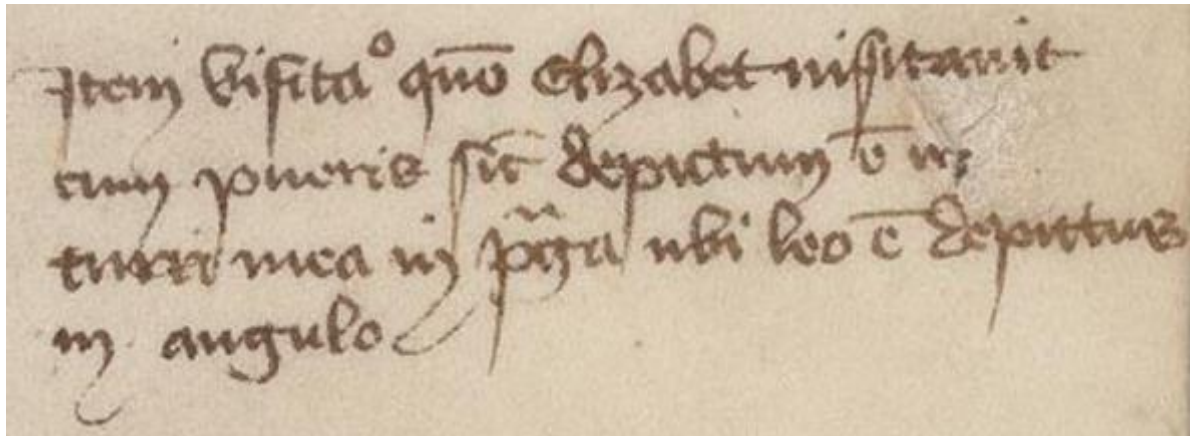 Item visita° quo̅ Elizabet visitavit
cum pueris sic̅ depictum e̅ in
turri mea in p̲ga ubi leo e̅ depictus
in angulo